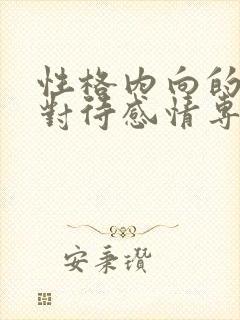 性格内向的
對待感情專
安秉瓚